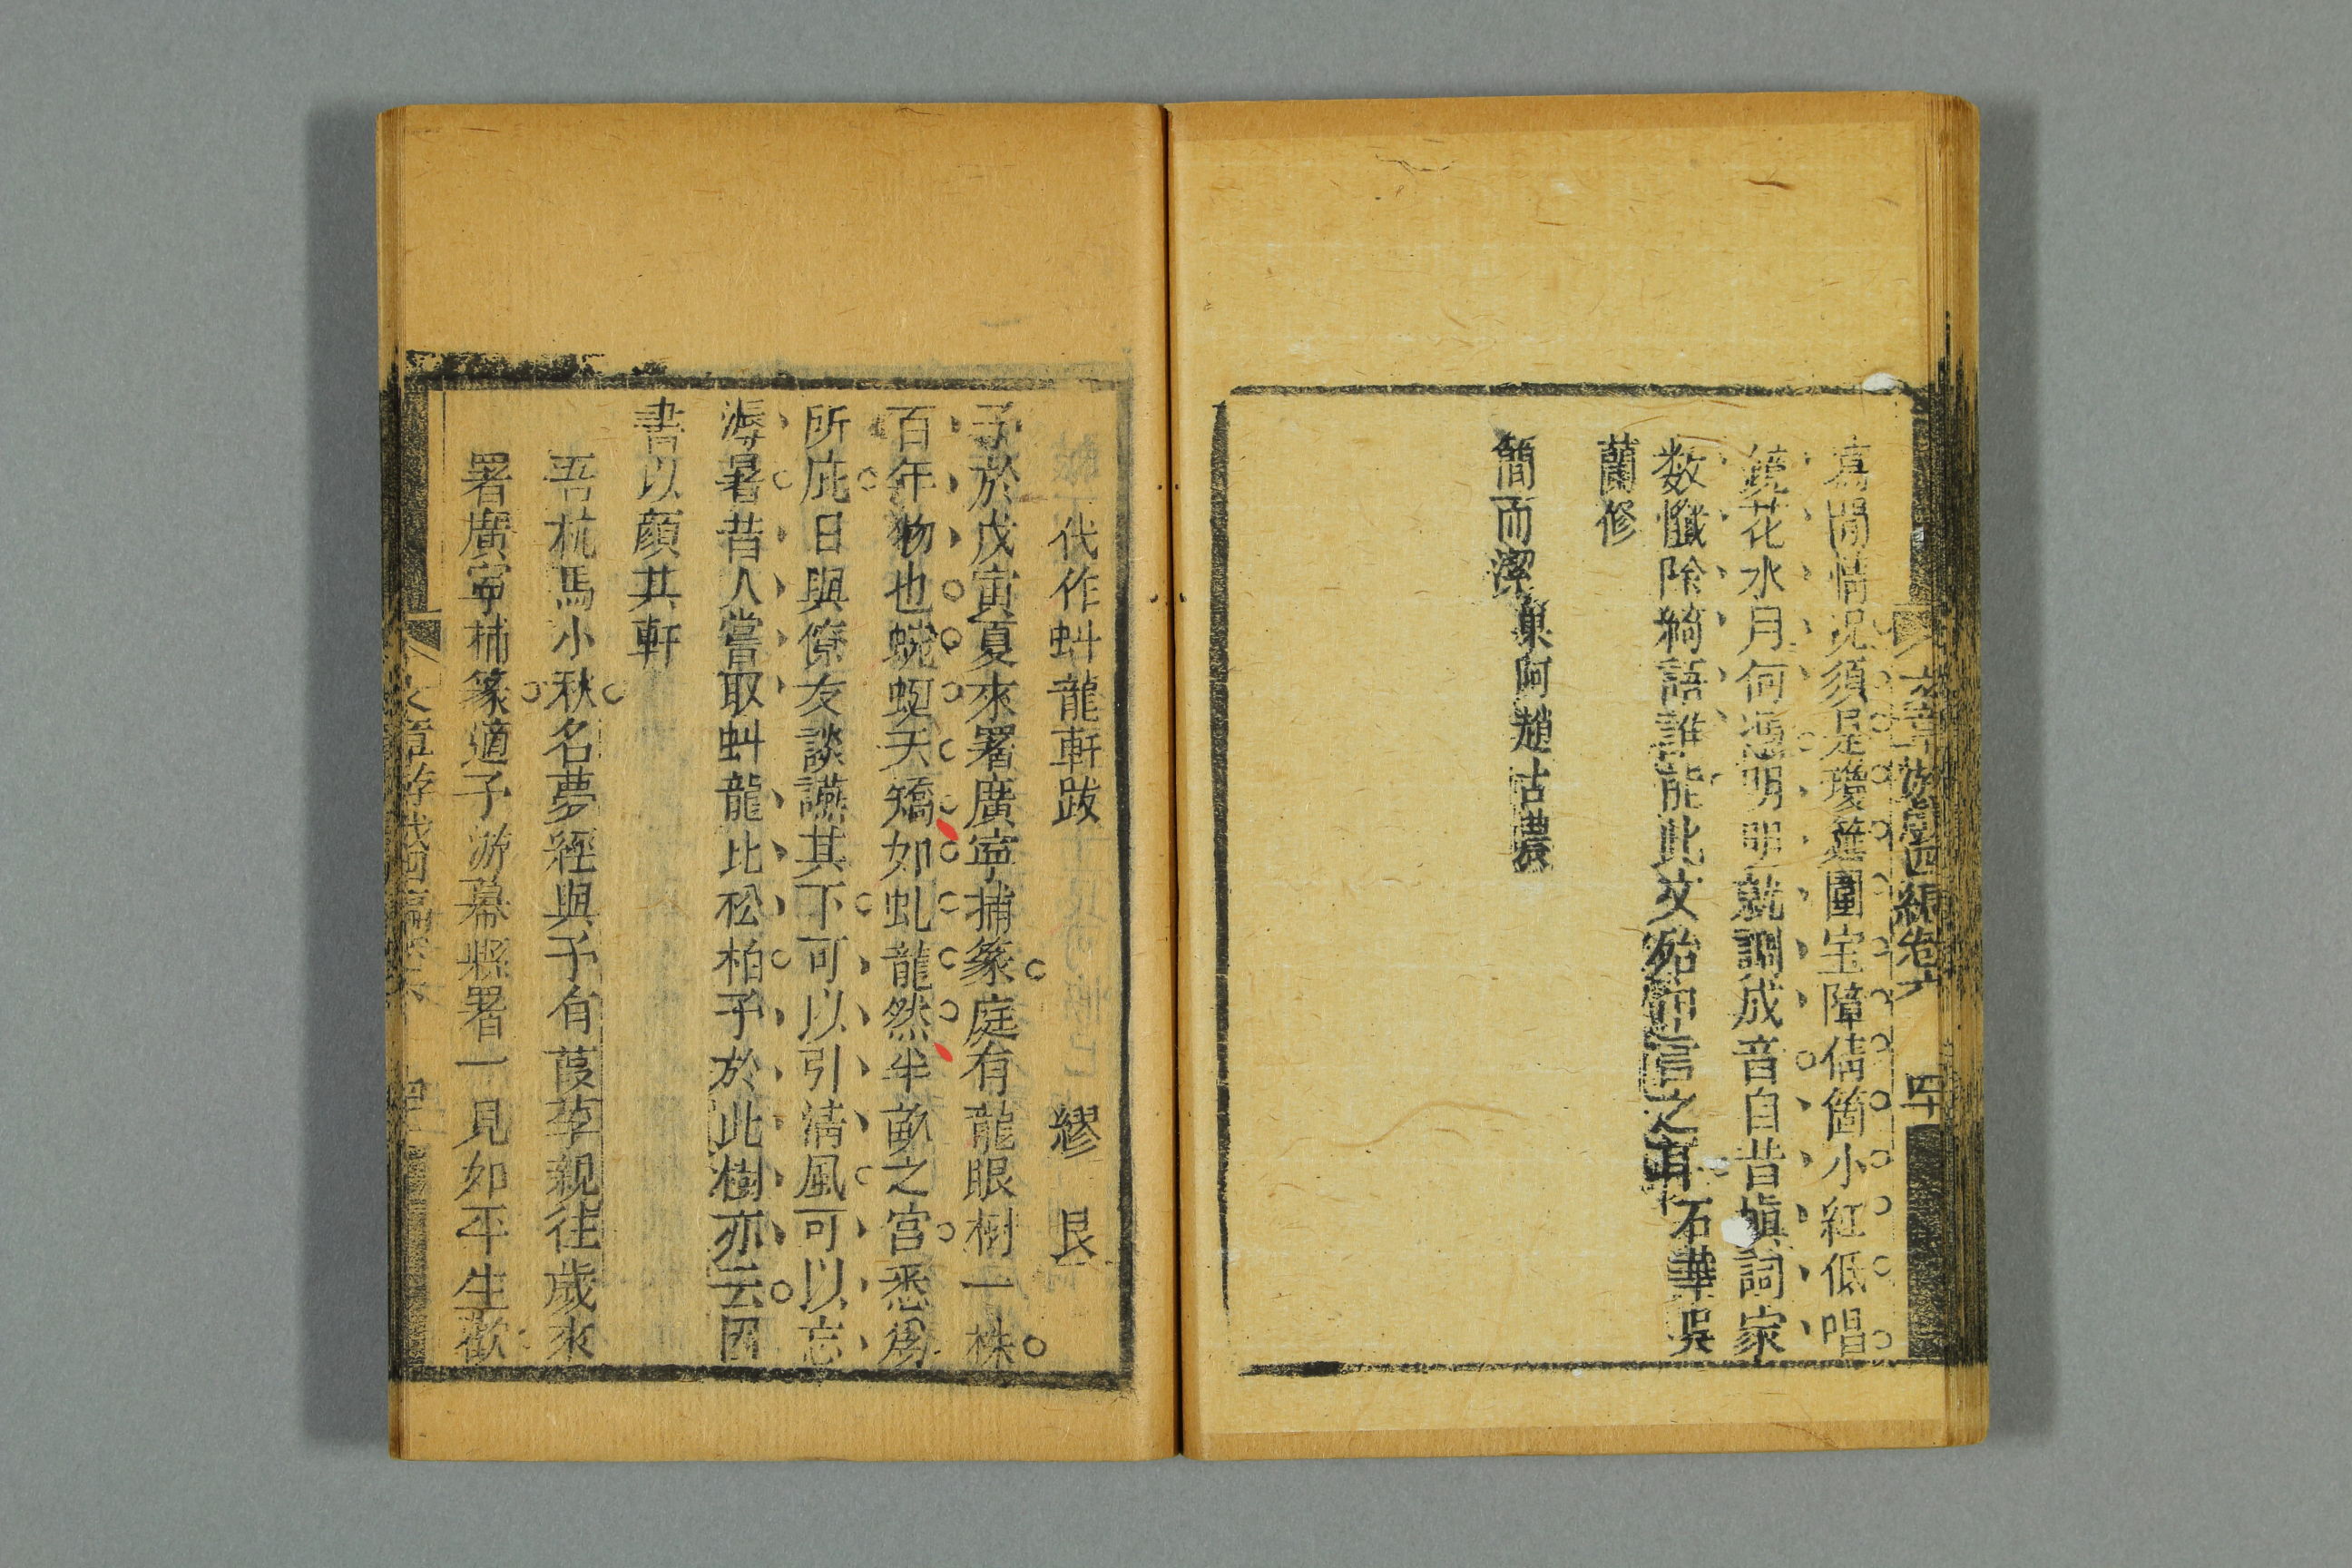 文章游戲四編卷六 四十
寫閒情况須是瓊筵圍宝障倩箇小紅低唱
鏡花水月何憑明明就調成音自昔塡詞家
数懺除綺語誰能此文殆市言之耳 石華吳
蘭修
簡而潔 巢阿趙古農
代作虯龍軒跋 繆艮
予於戊寅夏來署廣寧捕篆庭有龍眼樹一株
百年物也蜿蜒天矯如虬龍然半畝之宮悉爲
所庇日與僚友談讌其下可以引淸風可以忘
溽暑昔人嘗取虯龍比松柏予於此樹亦云因
書以顏其軒
吾杭馬小秋名夢經與予有葭莩親往歲來
署廣寧捕篆適予游幕縣署一見如平生歡
文章游戲四編卷六